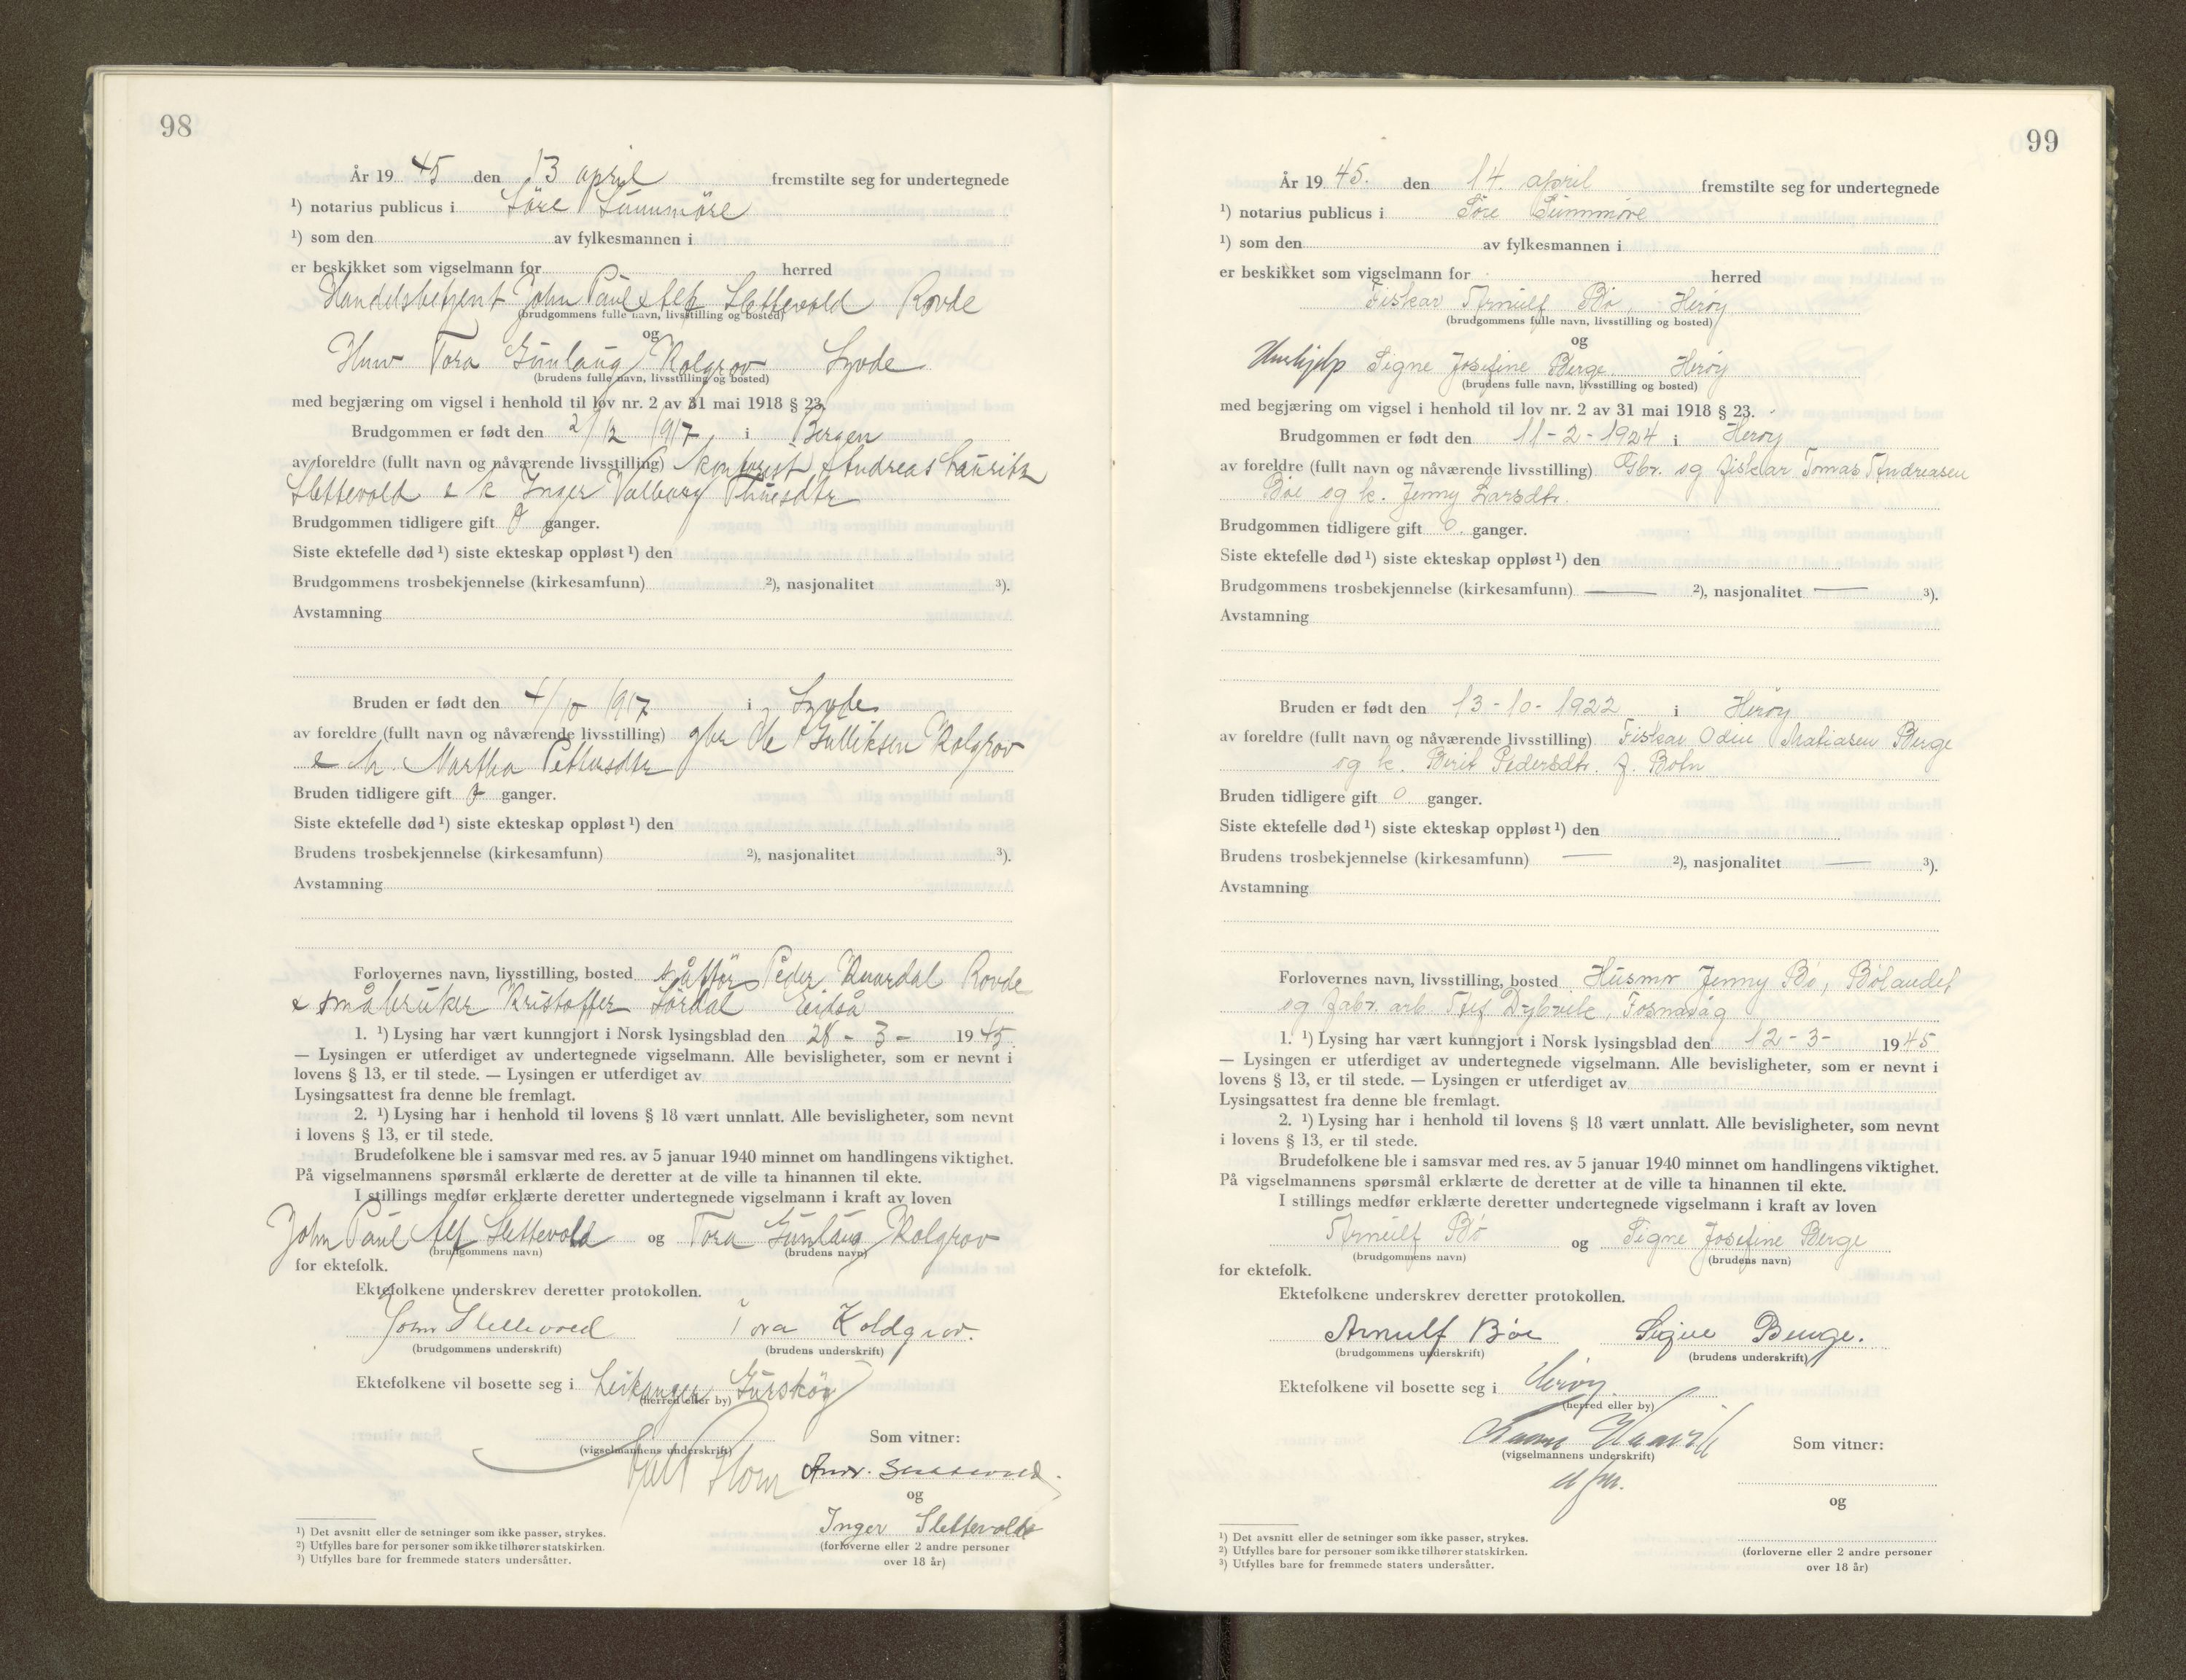 98
År 19 45 den 13 april fremstilte seg for undertegnede
¹) notarius publicus i Söre Sunnmöre
¹) som den av fylkesmannen i
er beskikket som vigselmann for herred
Handelsbetjent John Paul Alf Slettevold Rovde
(brudgommens fulle navn, livsstilling og bosted)
og
Tora Gunlaug Kolgrov Syvde
(brudens fulle navn, livsstilling og bosted)
med begjæring om vigsel i henhold til lov nr. 2 av 31 mai 1918 § 23.
Brudgommen er født den 2/12 1917 i Bergen
av foreldre (fullt navn og nåværende livsstilling) kontorist Andreas Lauritz
Slettevold & k Inger Valborg Thuesdtr
Brudgommen tidligere gift 0 ganger.
Siste ektefelle død ¹) siste ekteskap oppløst ¹) den
Brudgommens trosbekjennelse (kirkesamfunn) ²), nasjonalitet ³).
Avstamning
Bruden er født den 4/10 1917 i Syvde
av foreldre (fullt navn og nåværende livsstilling) gbr Ole Gulliksen Kolgrov
& h. Martha Pettersdtr
Bruden tidligere gift 0 ganger.
Siste ektefelle død ¹) siste ekteskap oppløst ¹) den
Brudens trosbekjennelse (kirkesamfunn) ²), nasjonalitet ³).
Avstamning
Forlovernes navn, livsstilling, bosted Peder Rovde
& småbruker Kristoffer Sördal Eidså
1. ¹) Lysing har vært kunngjort i Norsk lysingsblad den 28 - 3 - 19 45.
— Lysingen er utferdiget av undertegnede vigselmann. Alle bevisligheter, som er nevnt i
lovens § 13, er til stede. — Lysingen er utferdiget av
Lysingsattest fra denne ble fremlagt.
2. ¹) Lysing har i henhold til lovens § 18 vært unnlatt. Alle bevisligheter, som nevnt
i lovens § 13, er til stede.
Brudefolkene ble i samsvar med res. av 5 januar 1940 minnet om handlingens viktighet.
På vigselmannens spørsmål erklærte de deretter at de ville ta hinannen til ekte.
I stillings medfør erklærte deretter undertegnede vigselmann i kraft av loven
John Paul Alf Slettevold og Tora Gunlaug Kolgrov
(brudgommens navn) (brudens navn)
for ektefolk.
Ektefolkene underskrev deretter protokollen.
John Slettevold Tora Koldgrov.
(brudgommens underskrift) (brudens underskrift)
Ektefolkene vil bosette seg i Leikanger Gursköy
(herred eller by)
Som vitner:
(vigselmannens underskrift)
Andr. Slettevold.
og
Inger Slettevold
(forloverne eller 2 andre personer
over 18 år)
¹) Det avsnitt eller de setninger som ikke passer, strykes.
²) Utfylles bare for personer som ikke tilhører statskirken.
³) Utfylles bare for fremmede staters undersåtter.
99
År 19 45. den 14. april fremstilte seg for undertegnede
¹) notarius publicus i Søre Sunnmøre
¹) som den av fylkesmannen i
er beskikket som vigselmann for herred
Fiskar Arnulf Bø, Herøy
(brudgommens fulle navn, livsstilling og bosted)
og
Hushjelp Signe Josefine Berge Herøy
(brudens fulle navn, livsstilling og bosted)
med begjæring om vigsel i henhold til lov nr. 2 av 31 mai 1918 § 23.
Brudgommen er født den 11-2-1924 i Herøy
av foreldre (fullt navn og nåværende livsstilling) Gbr. og fiskar Tomas Andreasen
Bøe og k. Jenny Larsdtr.
Brudgommen tidligere gift 0. ganger.
Siste ektefelle død ¹) siste ekteskap oppløst ¹) den
Brudgommens trosbekjennelse (kirkesamfunn) — ²), nasjonalitet — ³).
Avstamning
Bruden er født den 13-10-1922 i Herøy
av foreldre (fullt navn og nåværende livsstilling) Fiskar Odin Matiasen Berge
og k. Berit Pedersdtr. f. Botn
Bruden tidligere gift 0. ganger.
Siste ektefelle død ¹) siste ekteskap oppløst ¹) den
Brudens trosbekjennelse (kirkesamfunn) — ²), nasjonalitet — ³).
Avstamning
Forlovernes navn, livsstilling, bosted Husmor Jenny Bø, Bølandet
og fabr. arb. Dybvik, Fosnavåg
1. ¹) Lysing har vært kunngjort i Norsk lysingsblad den 12-3- 19 45
— Lysingen er utferdiget av undertegnede vigselmann. Alle bevisligheter, som er nevnt i
lovens § 13, er til stede. — Lysingen er utferdiget av
Lysingsattest fra denne ble fremlagt.
2. ¹) Lysing har i henhold til lovens § 18 vært unnlatt. Alle bevisligheter, som nevnt
i lovens § 13, er til stede.
Brudefolkene ble i samsvar med res. av 5 januar 1940 minnet om handlingens viktighet.
På vigselmannens spørsmål erklærte de deretter at de ville ta hinannen til ekte.
I stillings medfør erklærte deretter undertegnede vigselmann i kraft av loven
Arnulf Bø og Signe Josefine Berge
(brudgommens navn) (brudens navn)
for ektefolk.
Ektefolkene underskrev deretter protokollen.
Arnulf Bøe Signe Berge.
(brudgommens underskrift) (brudens underskrift)
Ektefolkene vil bosette seg i Herøy.
(herred eller by)
(vigselmannens underskrift)
Som vitner:
og
(forloverne eller 2 andre personer
over 18 år)
¹) Det avsnitt eller de setninger som ikke passer, strykes.
²) Utfylles bare for personer som ikke tilhører statskirken.
³) Utfylles bare for fremmede staters undersåtter.